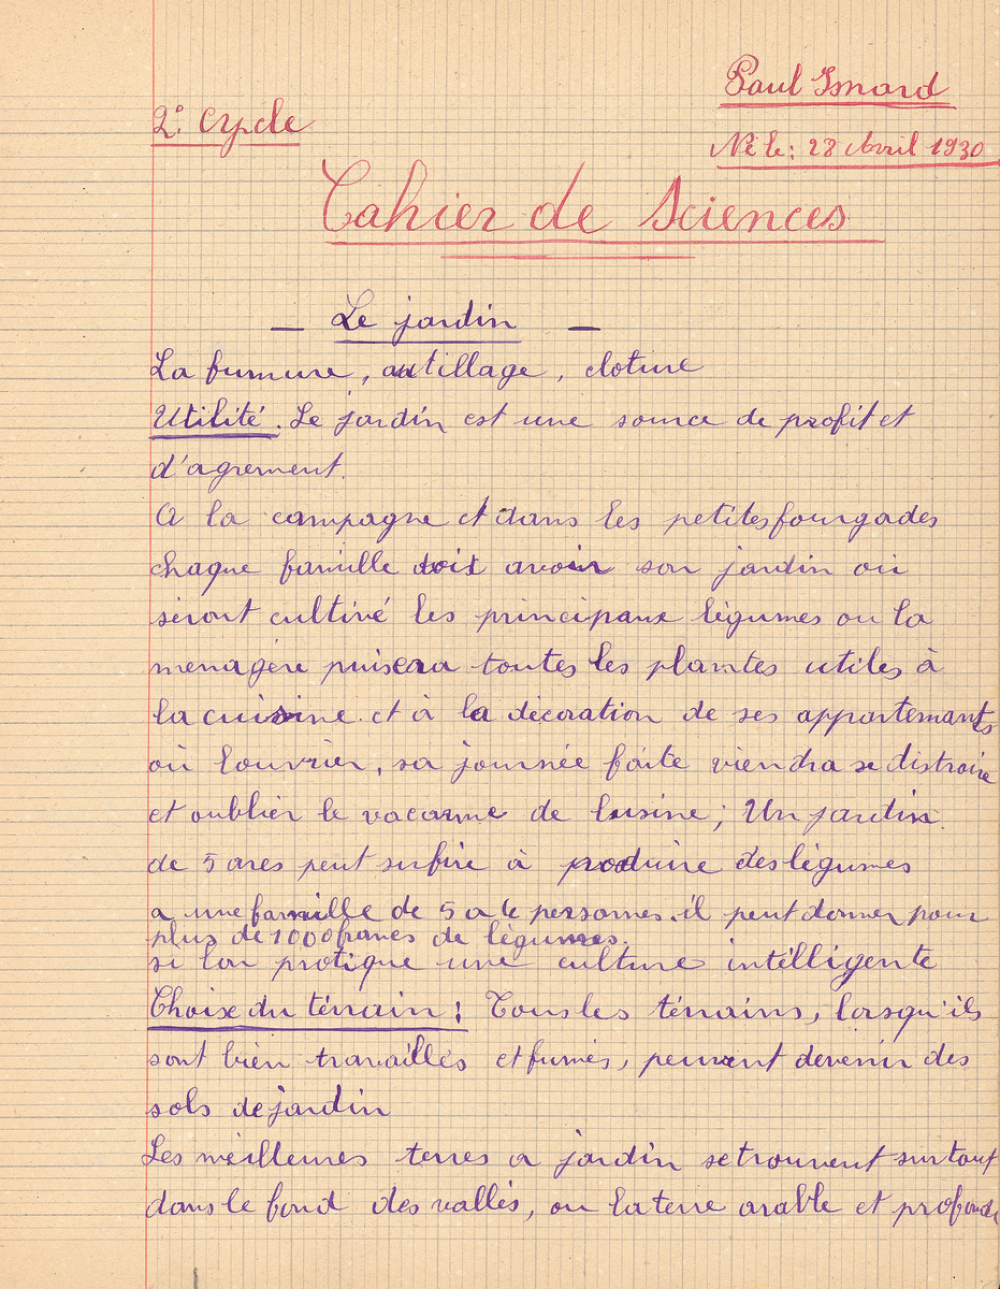 Paul Imard
2e Cycle
Né le : 28 Avril 1930
Cahier de Sciences
— Le jardin —
La fumure, outillage, cloture
Utilité. Le jardin est une source de profit et
d'agrement.
A la campagne et dans les petites fourgades
chaque famille doit avoir son jardin où
seront cultivé les principaux légumes ou la
menagère puisera toutes les plantes utiles à
la cuisine et à la décoration de ses appartemants
où louvrier, sa journée faite viendra se distraire
et oublier le vacarme de lusine; Un jardin
de 5 ares peut sufire à produire des légumes
a une famille de 5 a 6 personnes. il peut donner pour
plus de 1000 francs de légumes.
si lon pratique une culture intélligente
Choix du térrain : Tous les térrains, lorsqu'ils
sont bien travaillés et fumés, peuvent devenir des
sols de jardin
Les meilleures terres a jardin se trouvent surtout
dans le fond des vallés, ou la terre arable et profonde